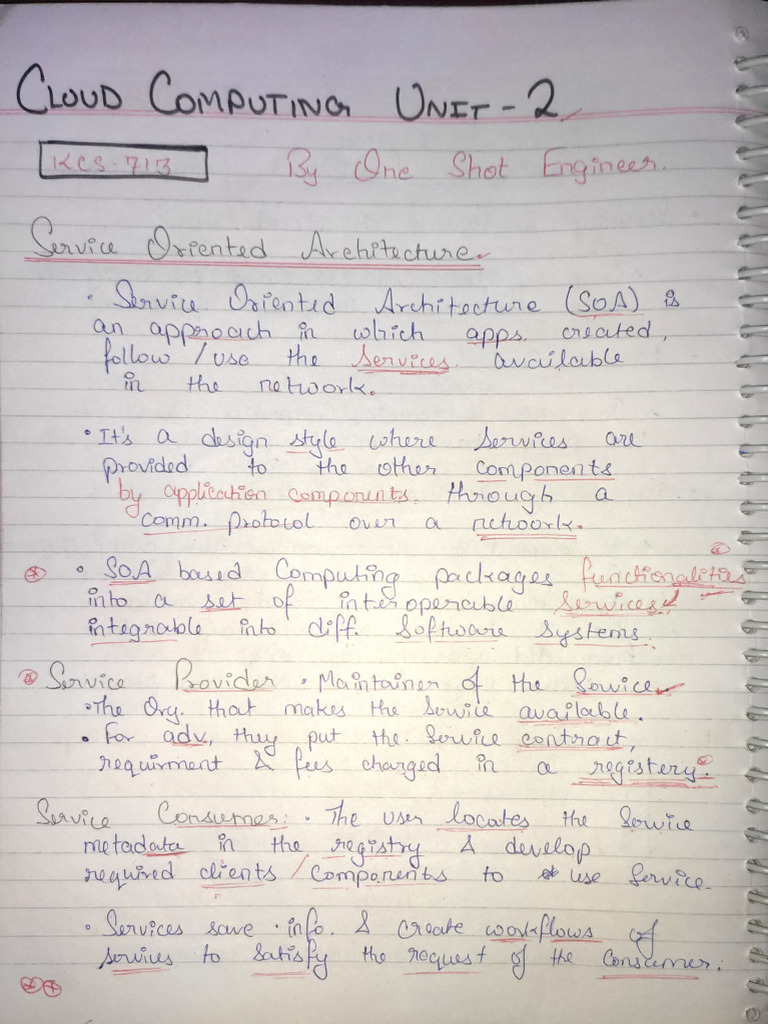 CLOUD COMPUTING UNIT - 2
KCS-713 By One Shot Engineer.
Service Oriented Architecture.
• Service Oriented Architecture (SOA) is
an approach in which apps. created,
follow / use the services available
in the network.
• It's a design style where services are
provided to the other components
by application components, through a
comm. protocol over a network.
• SOA based Computing packages functionalities
into a set of interoperable services
integrable into diff. Software Systems.
Service Provider • Maintainer of the Service
• The Org. that makes the service available.
• For adv, they put the service contract,
requirment & fees charged in a registery.
Service Consumer: • The user locates the service
metadata in the registry & develop
required clients / components to use service.
• Services save info. & create workflows of
services to satisfy the request of the consumer.